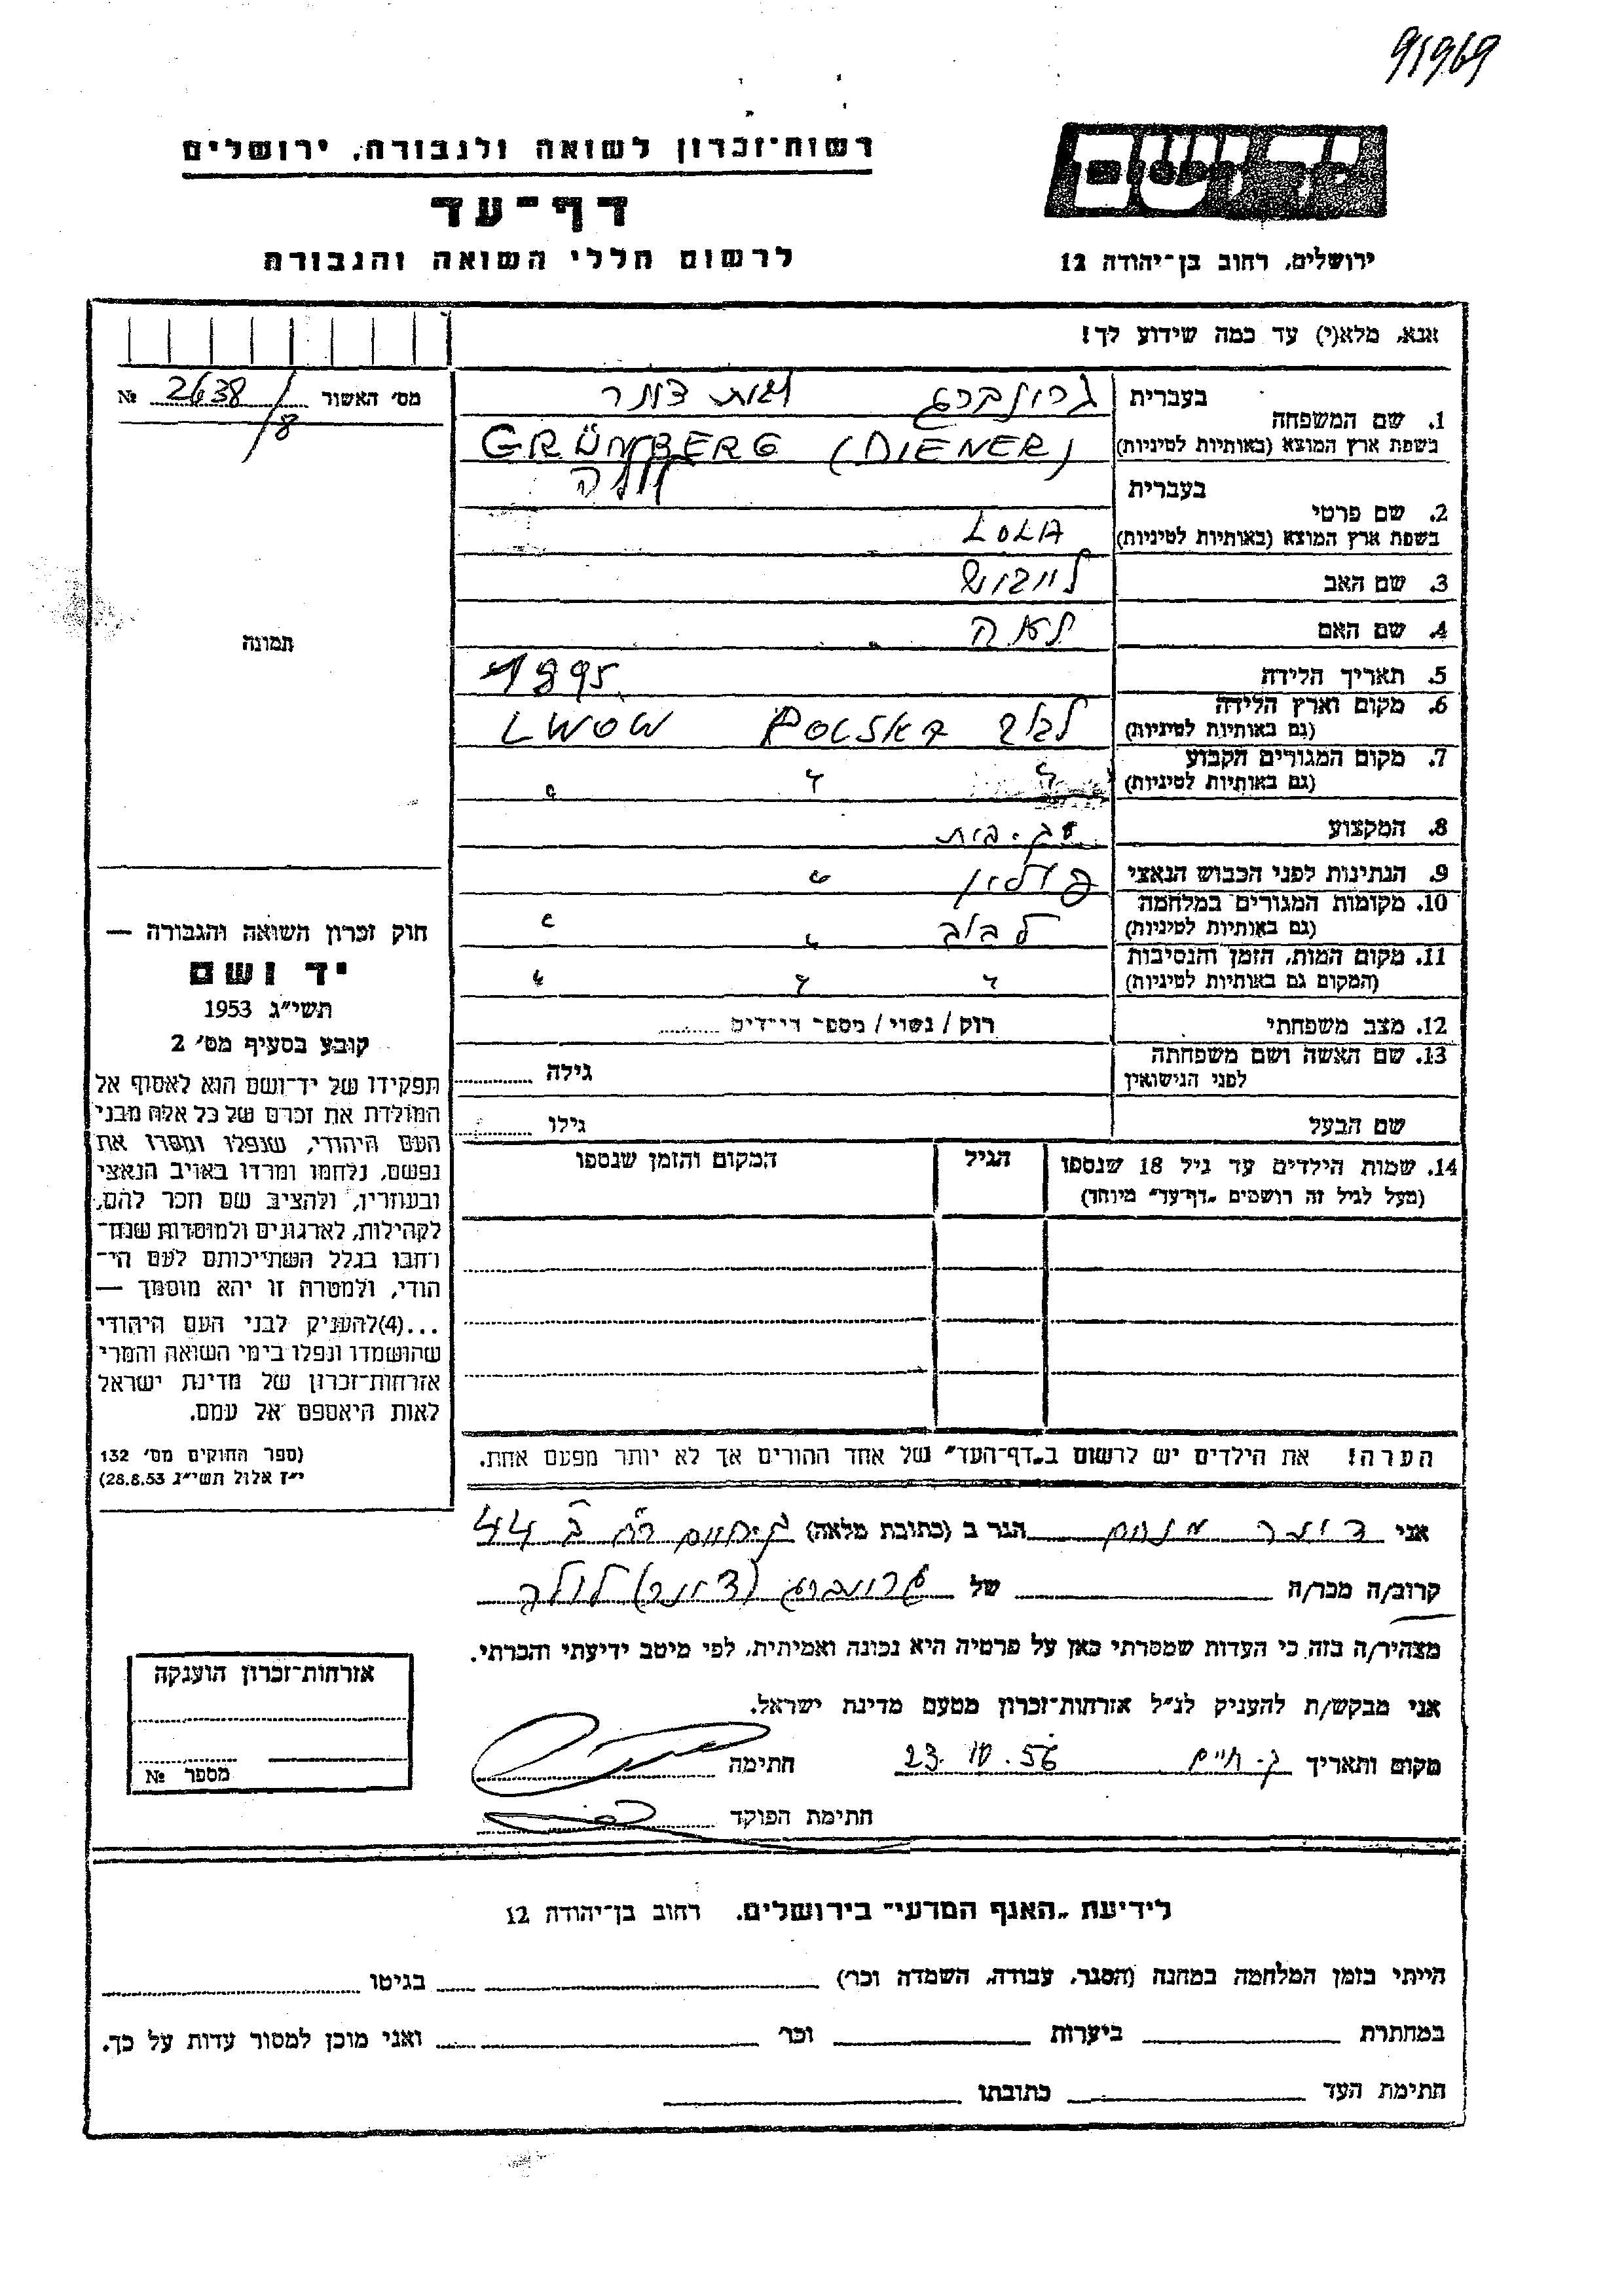 91969
רשות־זכרון לשואה ולגבורה, ירושלים
דף־עד
לרשום חללי השואה והגבורה
יד ושם
ירושלים, רחוב בן־יהודה 12
אנא, מלא(י) עד כמה שידוע לך!
מס׳ האשור 2638/8 №
תמונה
חוק זכרון השואה והגבורה —
יד ושם
תשי״ג 1953
קובע בסעיף מס׳ 2
תפקידו של יד־ושם הוא לאסוף אל
המולדת את זכרם של כל אלה מבני
העם היהודי, שנפלו ומסרו את
נפשם, נלחמו ומרדו באויב הנאצי
ובעוזריו, ולהציב שם וזכר להם,
לקהילות, לארגונים ולמוסדות שנח־
רחבו בגלל השתייכותם לעם הי־
הודי, ולמטרה זו יהא מוסמך —
...(4)להעניק לבני העם היהודי
שהושמדו ונפלו בימי השואה והמרי
אזרחות־זכרון של מדינת ישראל
לאות היאספם אל עמם.
(ספר החוקים מס׳ 132
י״ז אלול תשי״ג 28.8.53)
1. שם המשפחה בעברית גרינברג דינר
בשפת ארץ המוצא (באותיות לטיניות) GRÜNBERG (DIENER)
2. שם פרטי בעברית לולה
בשפת ארץ המוצא (באותיות לטיניות) LOLA
3. שם האב לייבוש
4. שם האם לאה
5. תאריך הלידה 1895
6. מקום וארץ הלידה (גם באותיות לטיניות) לבוב POLSKA LWOW
7. מקום המגורים הקבוע (גם באותיות לטיניות) " " "
8. המקצוע עק. בית
9. הנתינות לפני הכבוש הנאצי פולין "
10. מקומות המגורים במלחמה (גם באותיות לטיניות) לבוב " "
11. מקום המות, הזמן והנסיבות (המקום גם באותיות לטיניות) " " "
12. מצב משפחתי רוק / נשוי / מספר הילדים
13. שם האשה ושם משפחתה לפני הנישואין גילה
שם הבעל גילו
14. שמות הילדים עד גיל 18 שנספו הגיל המקום והזמן שנספו
(מעל לגיל זה רושמים „דף־עד״ מיוחד)
הערה! את הילדים יש לרשום ב„דף־העד״ של אחד ההורים אך לא יותר מפעם אחת.
אני דינר מנחם הגר ב (כתובת מלאה) ק. חיים רח ב 44
קרוב/ה מכר/ה של גרינברג (דינר) לולה
מצהיר/ה בזה כי העדות שמסרתי כאן על פרטיה היא נכונה ואמיתית, לפי מיטב ידיעתי והכרתי.
אני מבקש/ת להעניק לנ״ל אזרחות־זכרון מטעם מדינת ישראל.
מקום ותאריך ק. חיים 23. 56 חתימה
חתימת הפוקד
אזרחות־זכרון הוענקה
מספר №
לידיעת „האגף המדעי״ בירושלים. רחוב בן־יהודה 12
הייתי בזמן המלחמה במחנה (הסגר, עבודה, השמדה וכו׳) בגיטו
במחתרת ביערות וכו׳ ואני מוכן למסור עדות על כך.
חתימת העד כתובתו